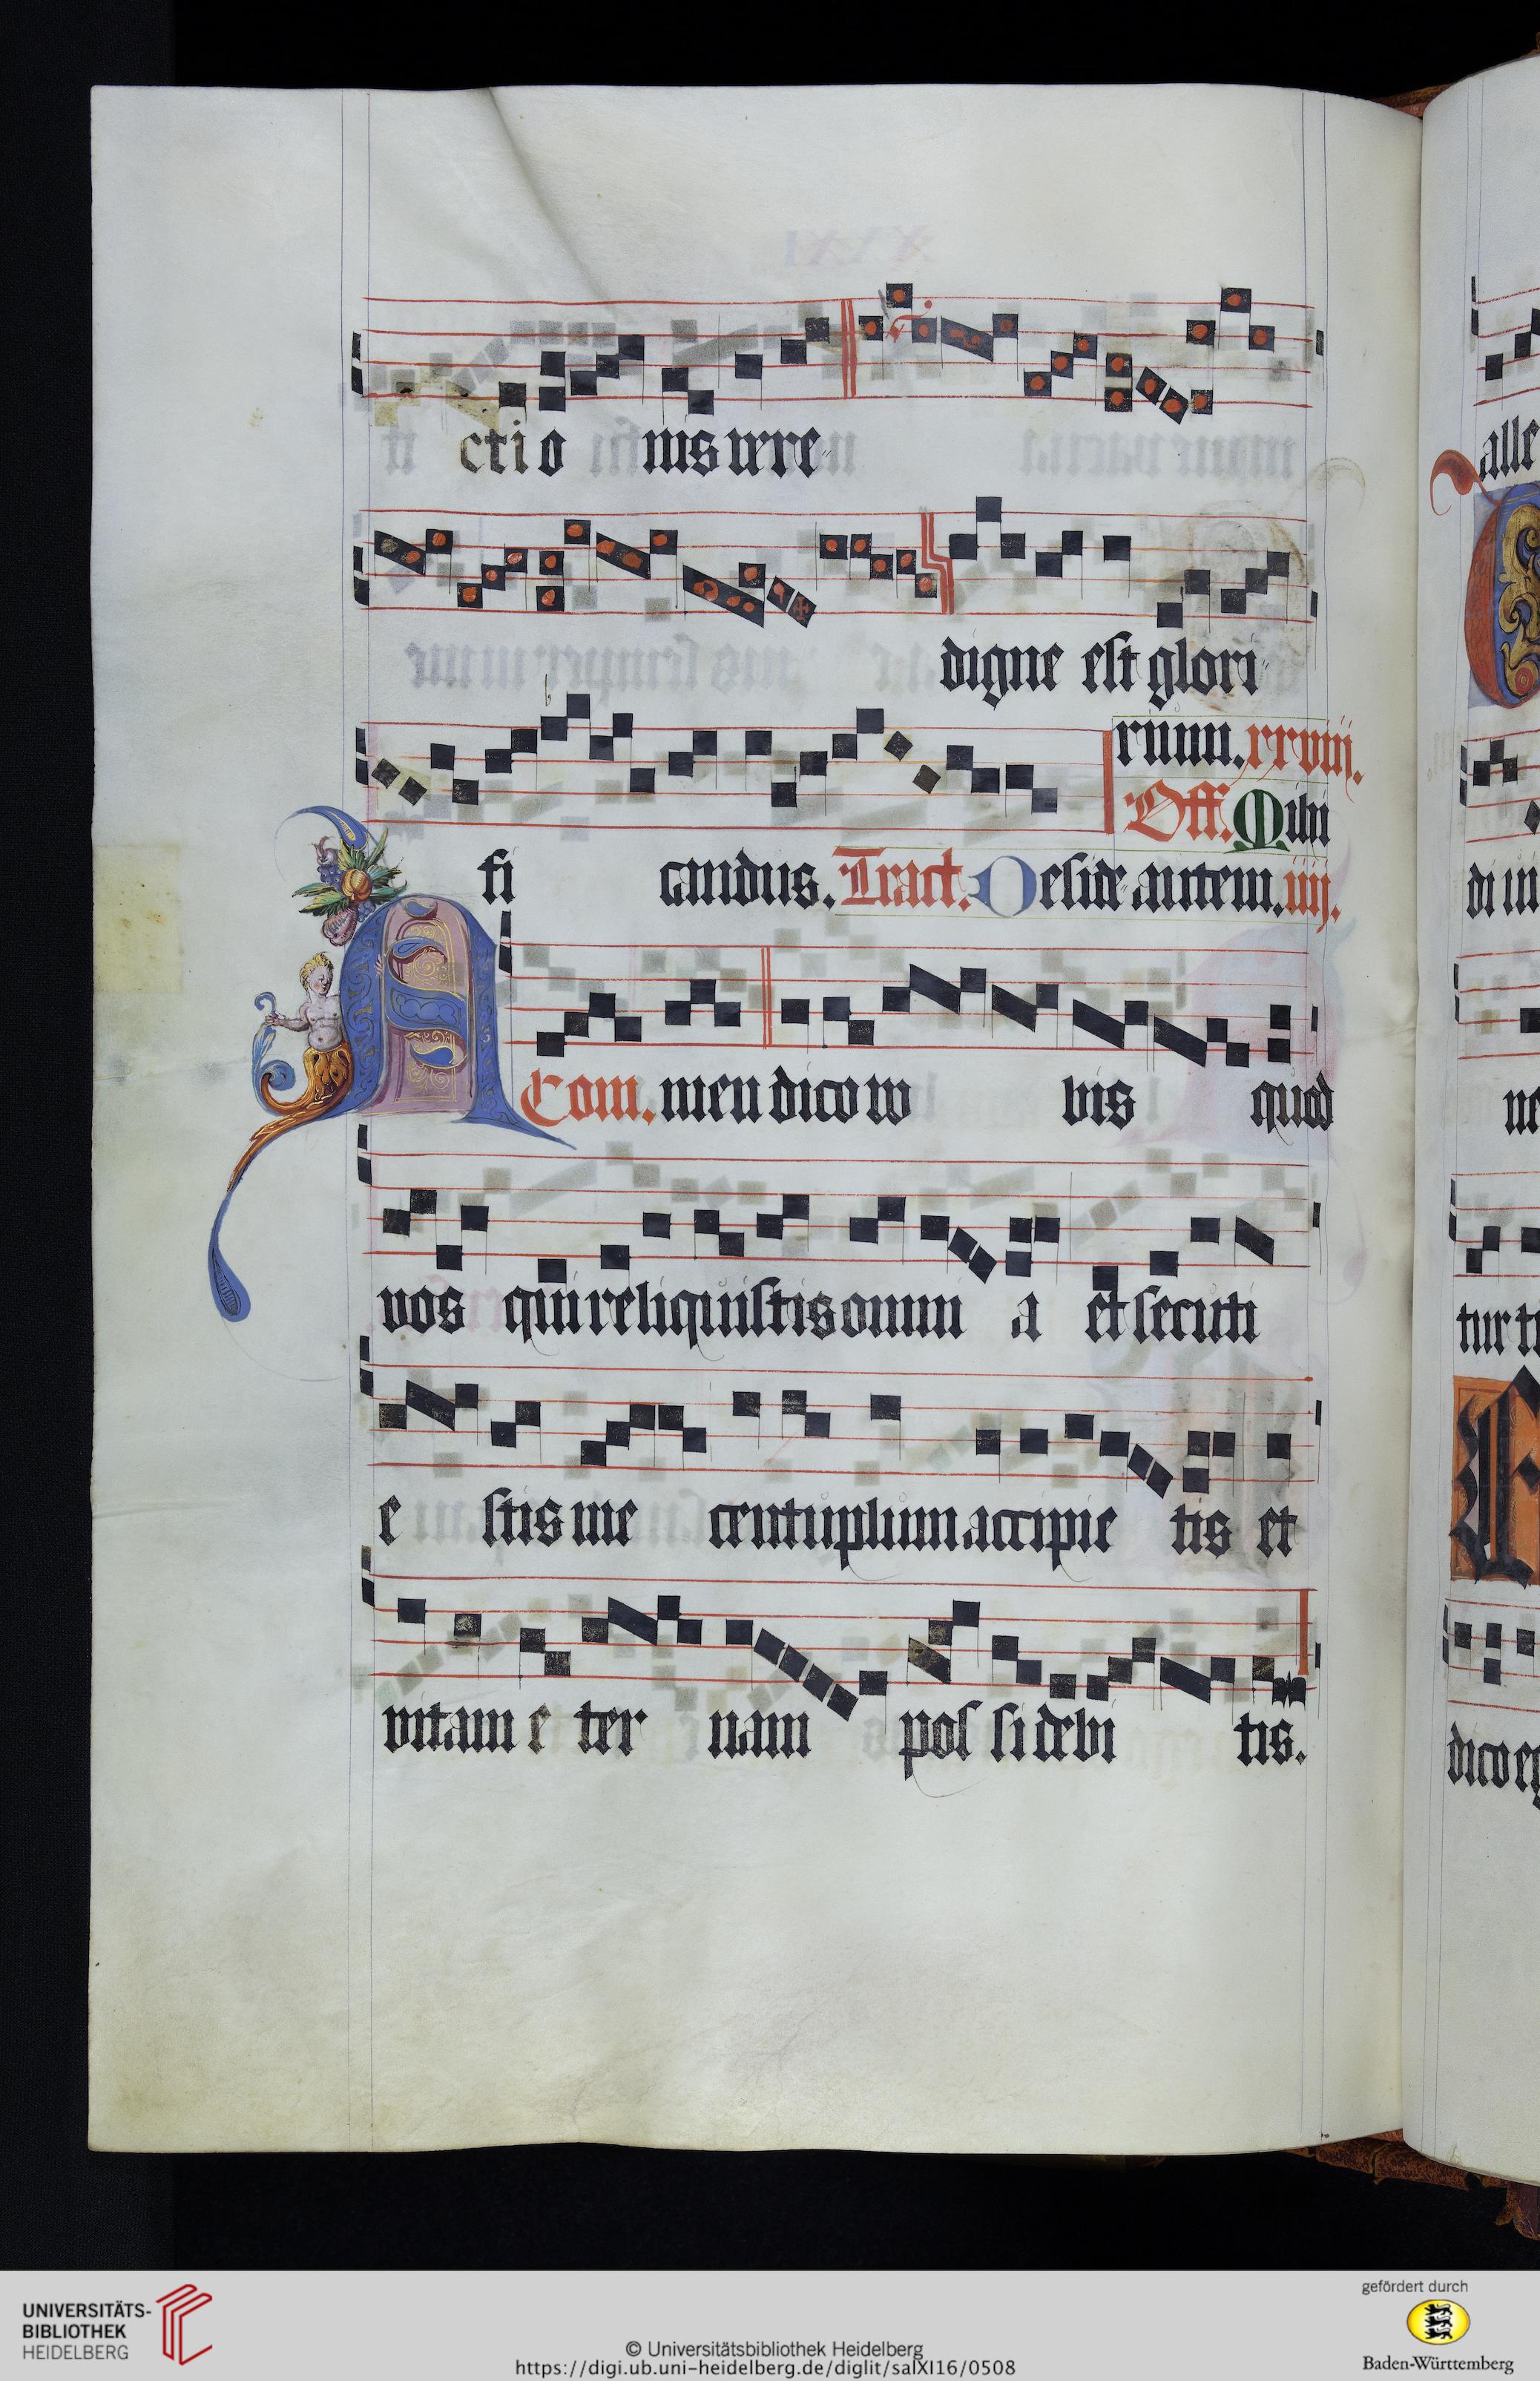 ctio nis vere-
digne est glori-
rium. xxviij.
Off. Mihi
fi candus. Tract. Desideriu autem. iiij.
A Com. men dico vo bis quod
vos qui reliquistis omni a et secuti
e stis me centuplum accipie tis et
vitam e ter nam pos sidebi tis.
alle
di in
ne
tur tu
dico eg
UNIVERSITÄTS-
BIBLIOTHEK
HEIDELBERG
© Universitätsbibliothek Heidelberg
https://digi.ub.uni-heidelberg.de/diglit/salXI16/0508
gefördert durch
Baden-Württemberg